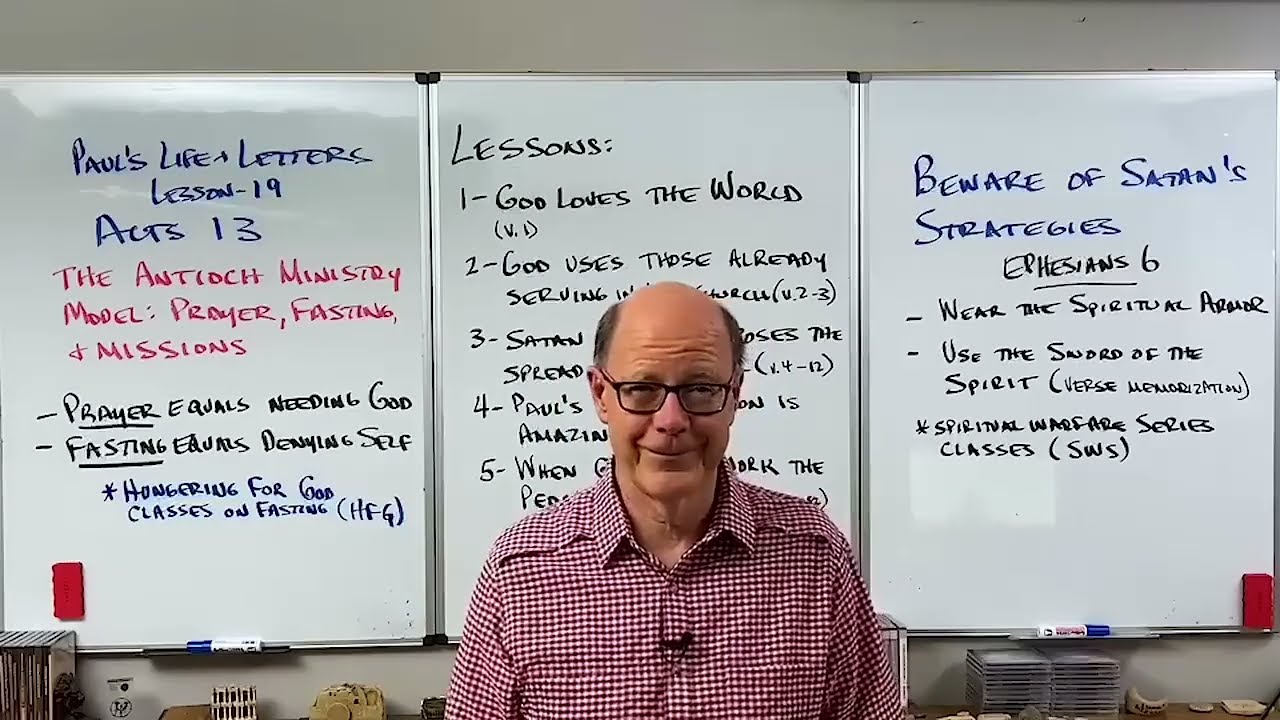 PAUL'S LIFE + LETTERS
LESSON-19
ACTS 13
THE ANTIOCH MINISTRY
MODEL: PRAYER, FASTING,
+ MISSIONS
- PRAYER EQUALS NEEDING GOD
- FASTING EQUALS DENYING SELF
* HUNGERING FOR GOD
CLASSES ON FASTING (HFG)
LESSONS:
1- GOD LOVES THE WORLD
(V.1)
2- GOD USES THOSE ALREADY
SERVING IN CHURCH (V.2-3)
3- SATAN THE
SPREAD (V.4-12)
4- PAUL'S IS
5- WHEN THE
BEWARE OF SATAN'S
STRATEGIES
EPHESIANS 6
- WEAR THE SPIRITUAL ARMOR
- USE THE SWORD OF THE
SPIRIT (VERSE MEMORIZATION)
* SPIRITUAL WARFARE SERIES
CLASSES (SWS)